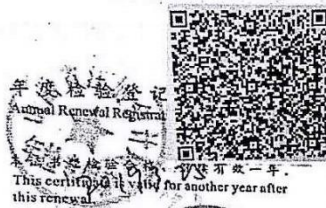 年度检验登记
Annual Renewal Registrat
本证书经检验合格,继续有效一年.
This certificate is valid for another year after
this renewal.